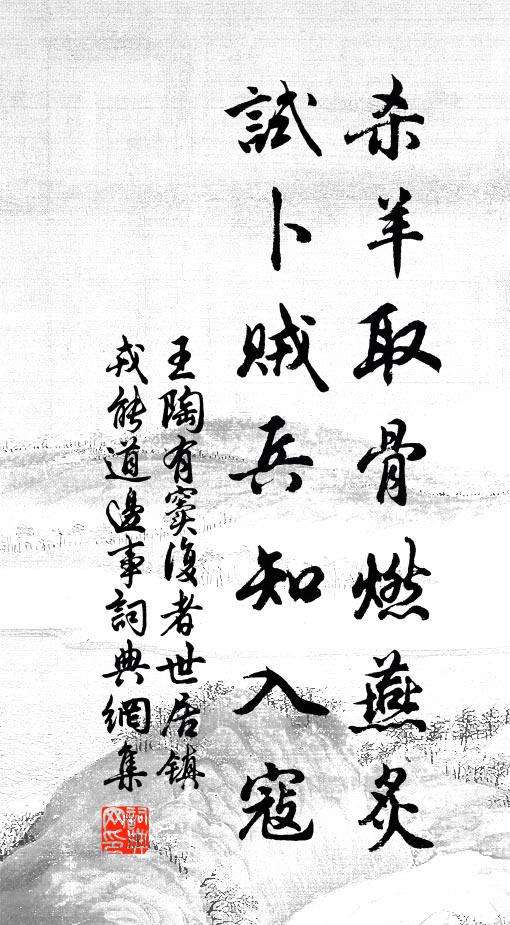 杀羊取骨燃燕炙
試卜贼兵知入寇
王陶有窦復者世居鎮
戎能道邊事詞典網集